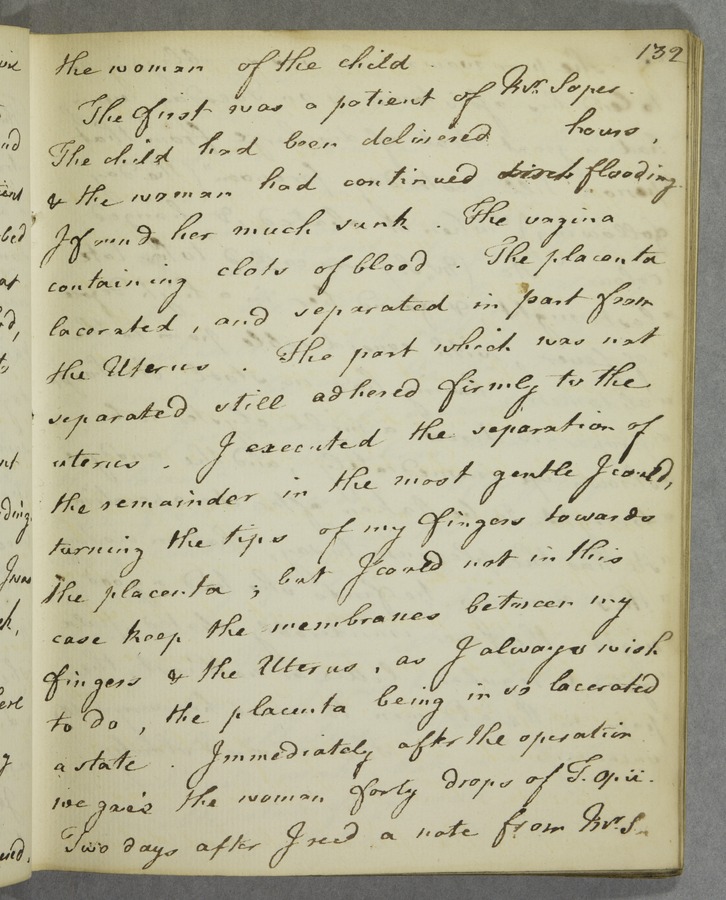 132
the woman of the child.
The first was a patient of Mr. Soper.
The child had been delivered hours,
& the woman had continued flooding.
I found her much sunk. The vagina
containing clots of blood. The placenta
lacerated, and separated in part from
the Uterus. The part which was not
separated still adhered firmly to the
uterus. I executed the separation of
the remainder in the most gentle I could,
turning the tips of my fingers towards
the placenta; but I could not in this
case keep the membranes between my
fingers & the Uterus, as I always wish
to do, the placenta being in so lacerated
a state. Immediately after the operation
we gave the woman forty drops of T. opii.
Two days after I recd a note from Mr. S.